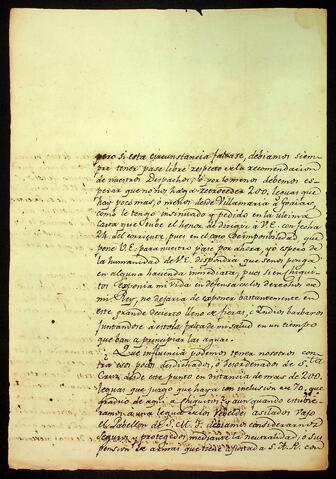 pero si esta circunstancia faltase, debiamos siem
pre tener pase libre respecto a la recomendacion
de nuestros Despachos; o por lo menos debemos es
perar que no nos haga retroceder 200. leguas que
hay poco mas, o menos desde Villamaria a Goiás,
como le tengo insinuado y pedido en la ultima
Carta que tube el honor de dirigir a V.E. con fecha
24. del corriente, pues en el caso de imposibilidad que
pone V.E. para nuestro pase por ahora, yo espero de
la humanidad de V.E. dispondrá que se nos ponga
en alguna hacienda inmediata, pues si en Chiqui
tos exponia mi vida en defensa de los derechos de
mi Rey, no dejaria de exponer bastantemente en
este grande decierto lleno de fieras, e Indios barbaros
juntandose a esto la falta de mi salud en un tiempo
que ban a principiar las aguas.
Que influencia podemos tener nosotros con
tra esos pocos desdichados, o desordenados de S.ta
Cruz desde este punto en distancia de mas de 200.
leguas que juzgo que haya con inclusion de 70. que
gradúo de aqui a Chiquitos; y aun quando estubie
ramos a una legua de los rebeldes asilados vajo
el Pabellon de S.M.F. debiamos considerarnos
seguros y protegidos mediante la neutralidad, o Sus
pension de armas que tiene ajustada S.A.R. con